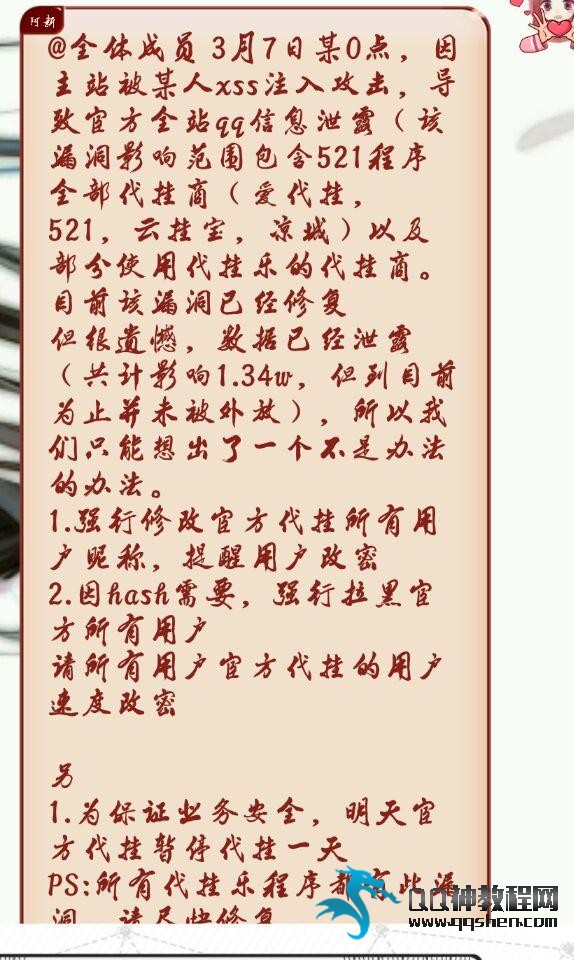 阿新
@全体成员 3月7日某0点，因
主站被某人xss注入攻击，导
致官方全站qq信息泄露（该
漏洞影响范围包含521程序
全部代挂商（爱代挂，
521，云挂宝，凉城）以及
部分使用代挂乐的代挂商。
目前该漏洞已经修复
但很遗憾，数据已经泄露
（共计影响1.34w，但到目前
为止并未被外放），所以我
们只能想出了一个不是办法
的办法。
1.强行修改官方代挂所有用
户昵称，提醒用户改密
2.因hash需要，强行拉黑官
方所有用户
请所有用户官方代挂的用户
速度改密
另
1.为保证业务安全，明天官
方代挂暂停代挂一天
PS:所有代挂乐程序都有此漏
洞，请尽快修复
QQ神教程网
www.qqshen.com